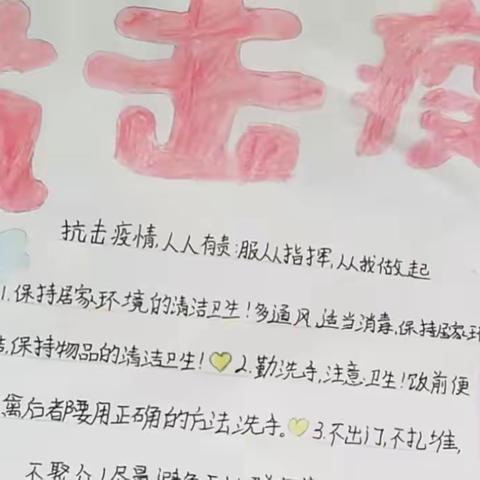 抗击疫
抗击疫情,人人有责:服从指挥,从我做起
1.保持居家环境的清洁卫生!多通风,适当消毒,保持居家环
洁,保持物品的清洁卫生!2.勤洗手,注意卫生!饭前便
离后都要用正确的方法洗手。3.不出门,不扎堆,
不聚会!尽量避免